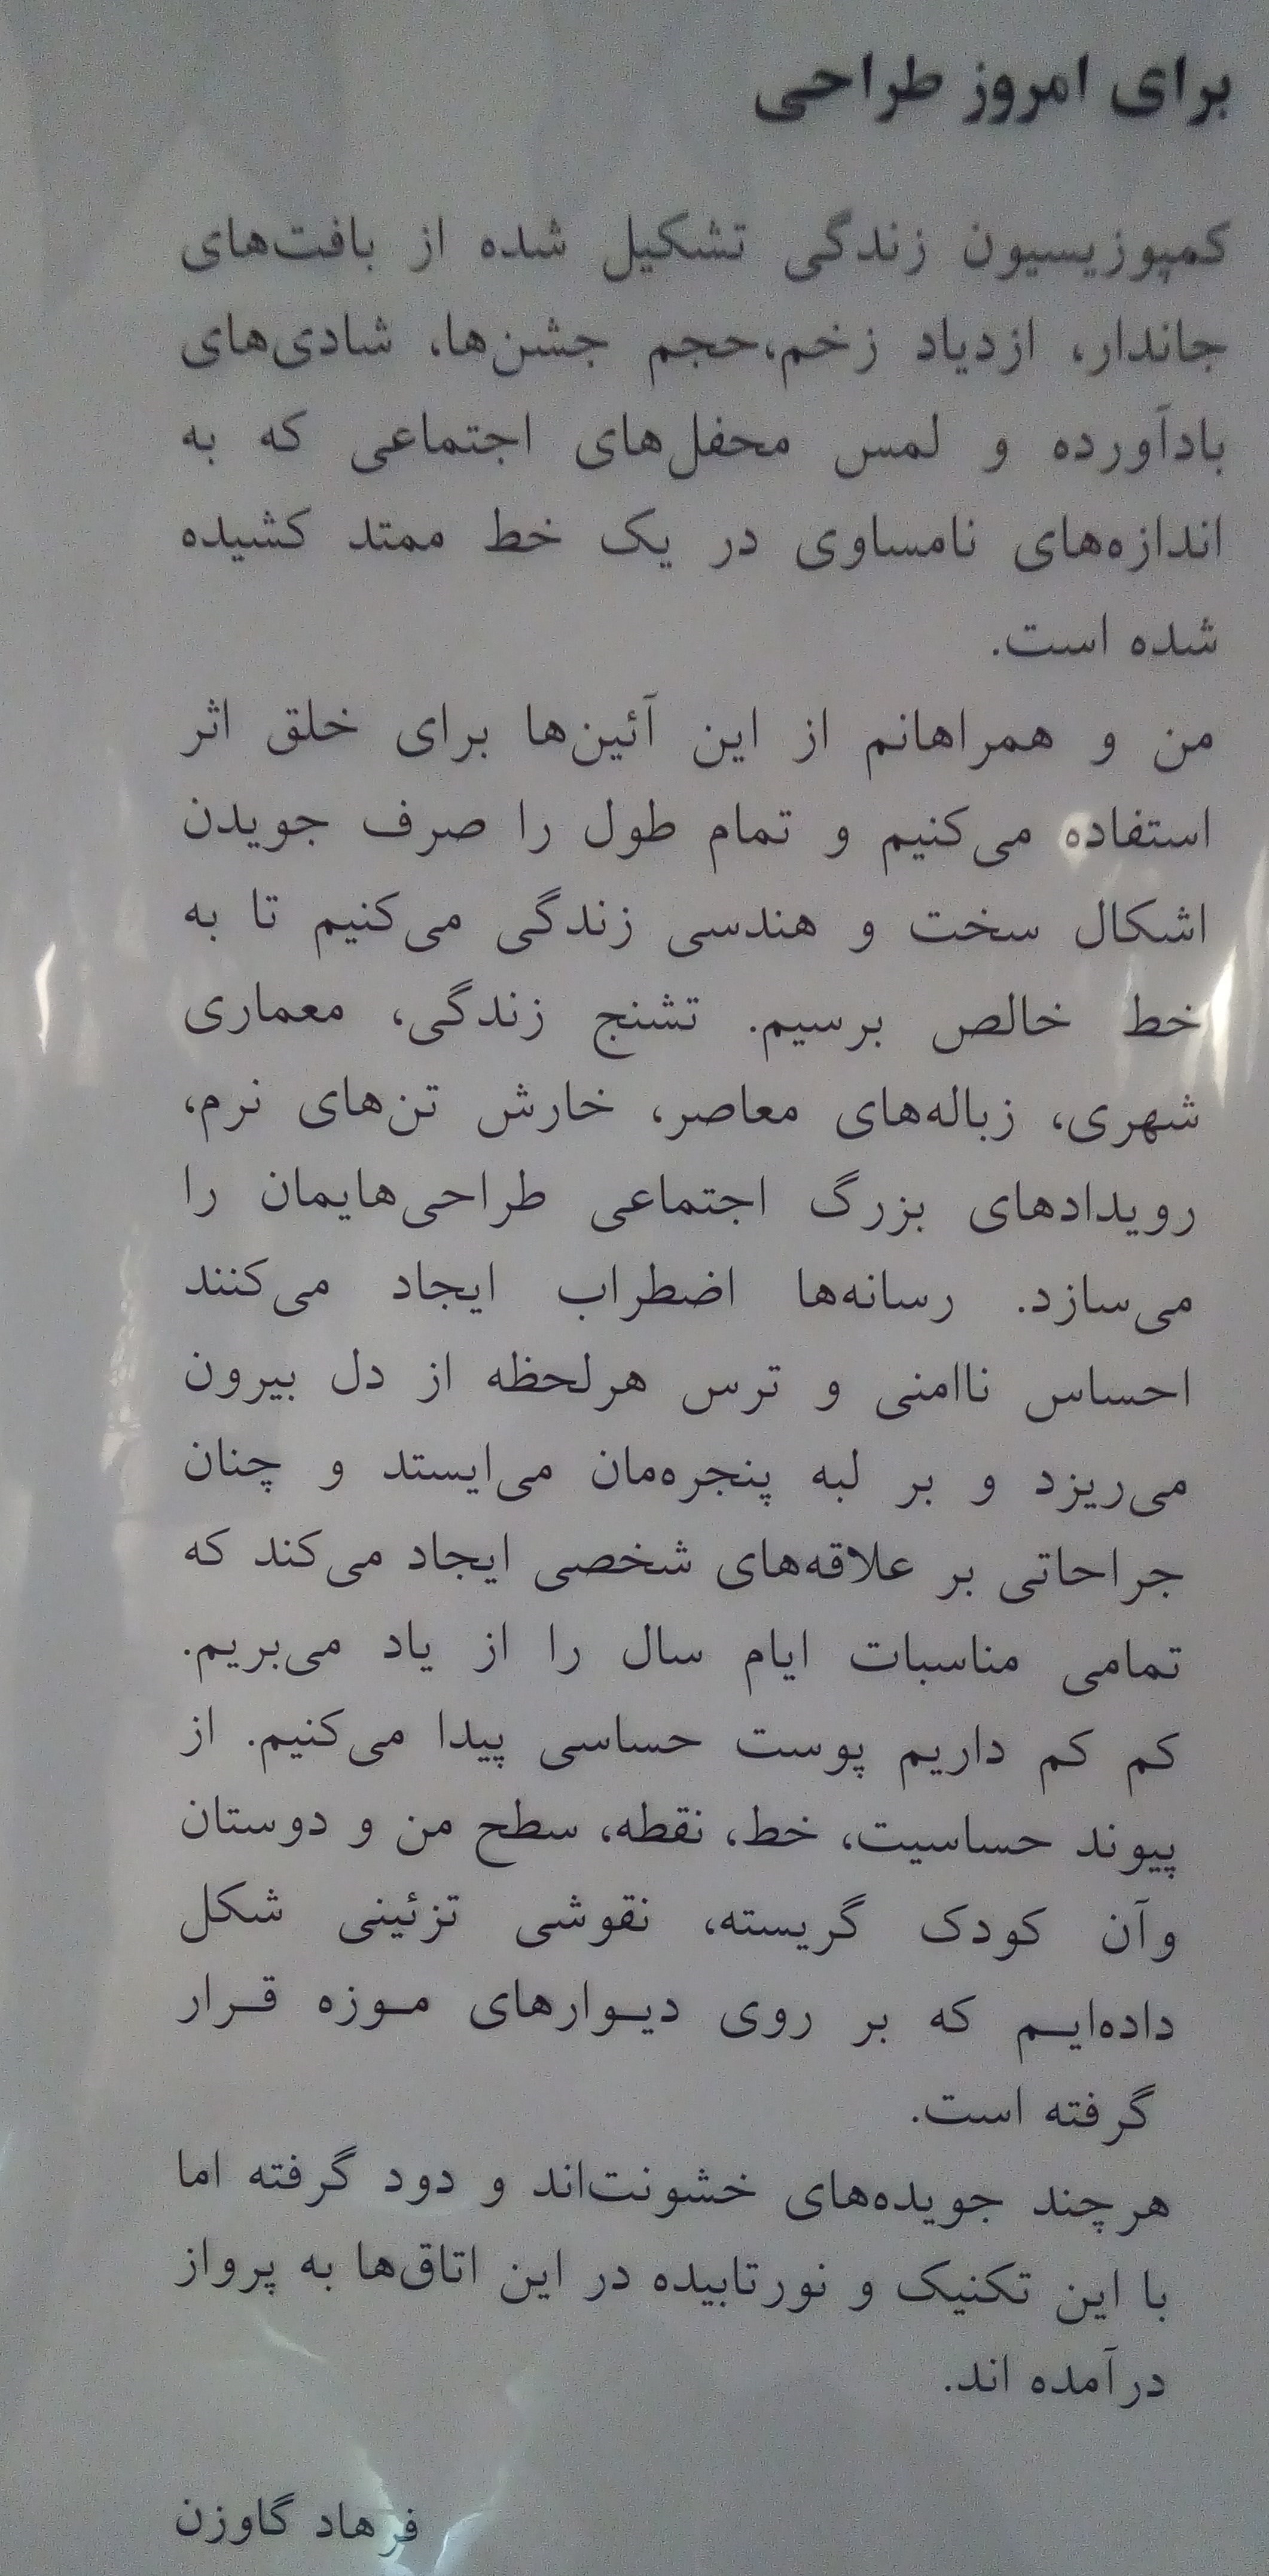 برای امروز طراحی
کمپوزیسیون زندگی تشکیل شده از بافت‌های
جاندار، ازدیاد زخم،حجم جشن‌ها، شادی‌های
بادآورده و لمس محفل‌های اجتماعی که به
اندازه‌های نامساوی در یک خط ممتد کشیده
شده است.
من و همراهانم از این آئین‌ها برای خلق اثر
استفاده می‌کنیم و تمام طول را صرف جویدن
اشکال سخت و هندسی زندگی می‌کنیم تا به
خط خالص برسیم. تشنج زندگی، معماری
شهری، زباله‌های معاصر، خارش تن‌های نرم،
رویدادهای بزرگ اجتماعی طراحی‌هایمان را
می‌سازد. رسانه‌ها اضطراب ایجاد می‌کنند
احساس ناامنی و ترس هرلحظه از دل بیرون
می‌ریزد و بر لبه پنجره‌مان می‌ایستد و چنان
جراحاتی بر علاقه‌های شخصی ایجاد می‌کند که
تمامی مناسبات ایام سال را از یاد می‌بریم.
کم کم داریم پوست حساسی پیدا می‌کنیم. از
پیوند حساسیت، خط، نقطه، سطح من و دوستان
وآن کودک گریسته، نقوشی تزئینی شکل
داده‌ایـم که بر روی دیـوارهای مـوزه قـرار
گرفته است.
هرچند جویده‌های خشونت‌اند و دود گرفته اما
با این تکنیک و نورتابیده در این اتاق‌ها به پرواز
درآمده اند.
فرهاد گاوزن